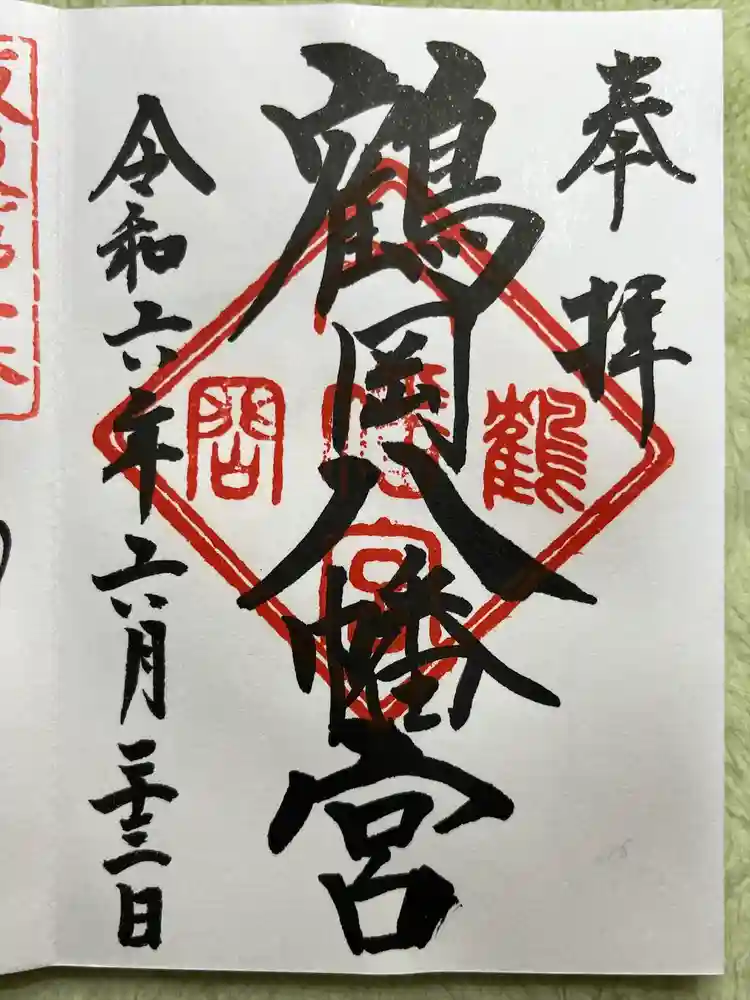 奉拝
鶴岡八幡宮
令和六年六月二十三日